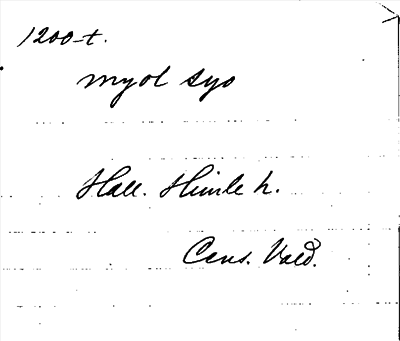 1200-t.
myol syo
Hall. Himle h.
Cens. Vald.